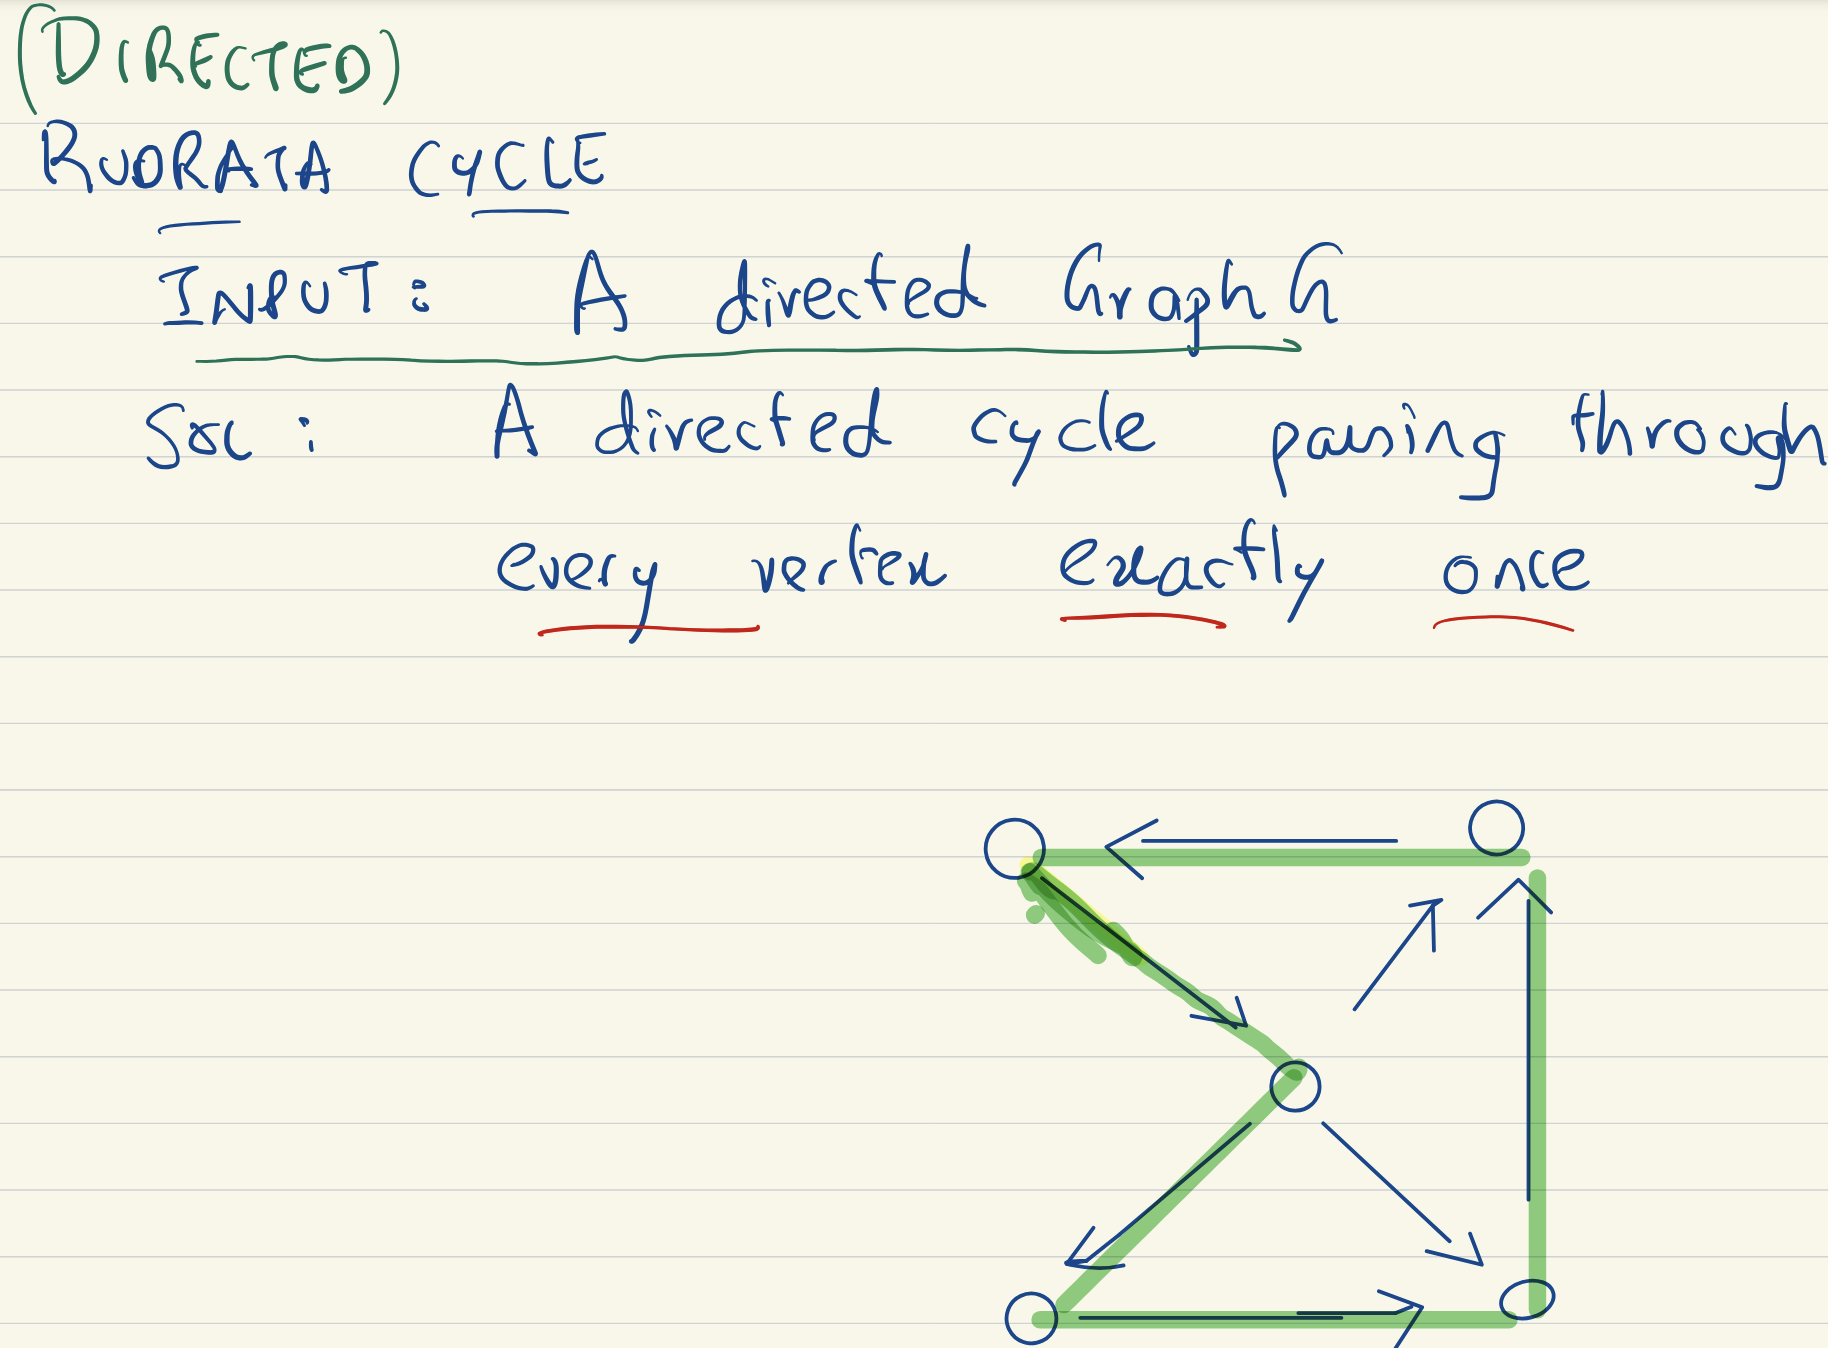 (DIRECTED)
RUDRATA CYCLE
INPUT: A directed Graph G
Sol: A directed cycle passing through
every vertex exactly once